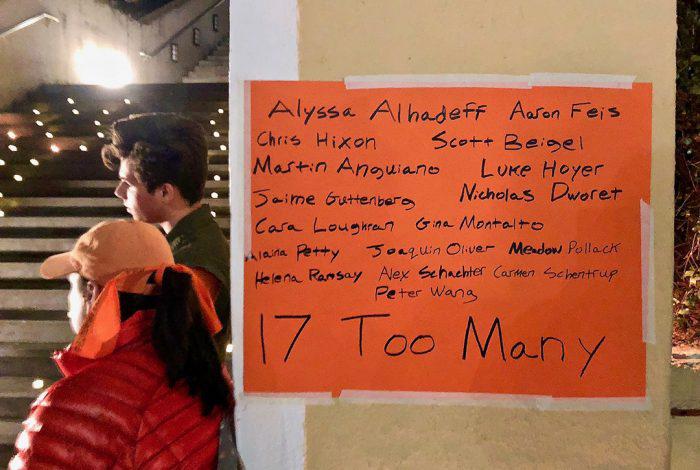 Alyssa Alhadeff Aaron Feis
Chris Hixon Scott Beigel
Martin Anguiano Luke Hoyer
Jaime Guttenberg Nicholas Dworet
Cara Loughran Gina Montalto
Alaina Petty Joaquin Oliver Meadow Pollack
Helena Ramsay Alex Schachter Carmen Schentrup
Peter Wang
17 Too Many